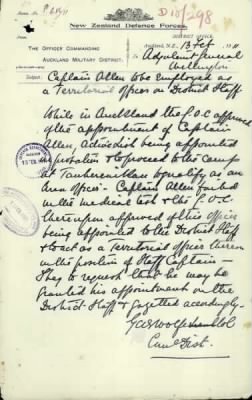 D 10/298
New Zealand Defence Forces.
DISTRICT OFFICE
THE OFFICER COMMANDING
AUCKLAND MILITARY DISTRICT.
Auckland, N.Z., 13 Feb 1911
Adjutant General
Wellington
Subject:— Captain Allen to be employed as
a Territorial officer on District Staff
While in Auckland the G.O.C approved
of the appointment of Captain
Allen, Adm being appointed
on probation & to proceed to the camp
at Tauherenikau to qualify as an
Area officer— Captain Allen failed
in the medical test & the G.O.C.
thereupon approved of this officer
being appointed to the District Staff
& to act as a Territorial officer thereon
in the position of Staff Captain—
to request that he may be
granted his appointment on the
District Staff & gazetted accordingly—
Lt Col
Dist.